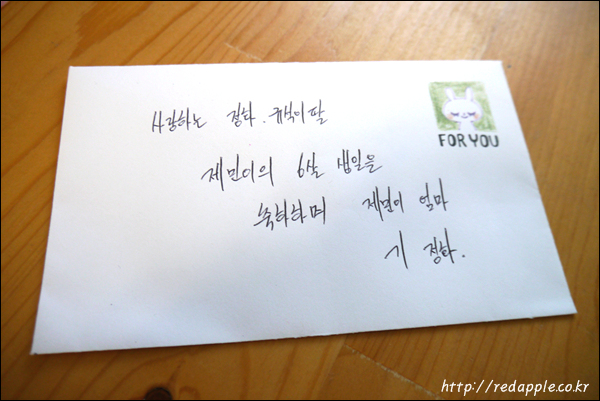 사랑하는 정화.규석이딸
FOR YOU
제민이의 6살 생일을
축하하며 제민이 엄마
정화.
http://redapple.co.kr